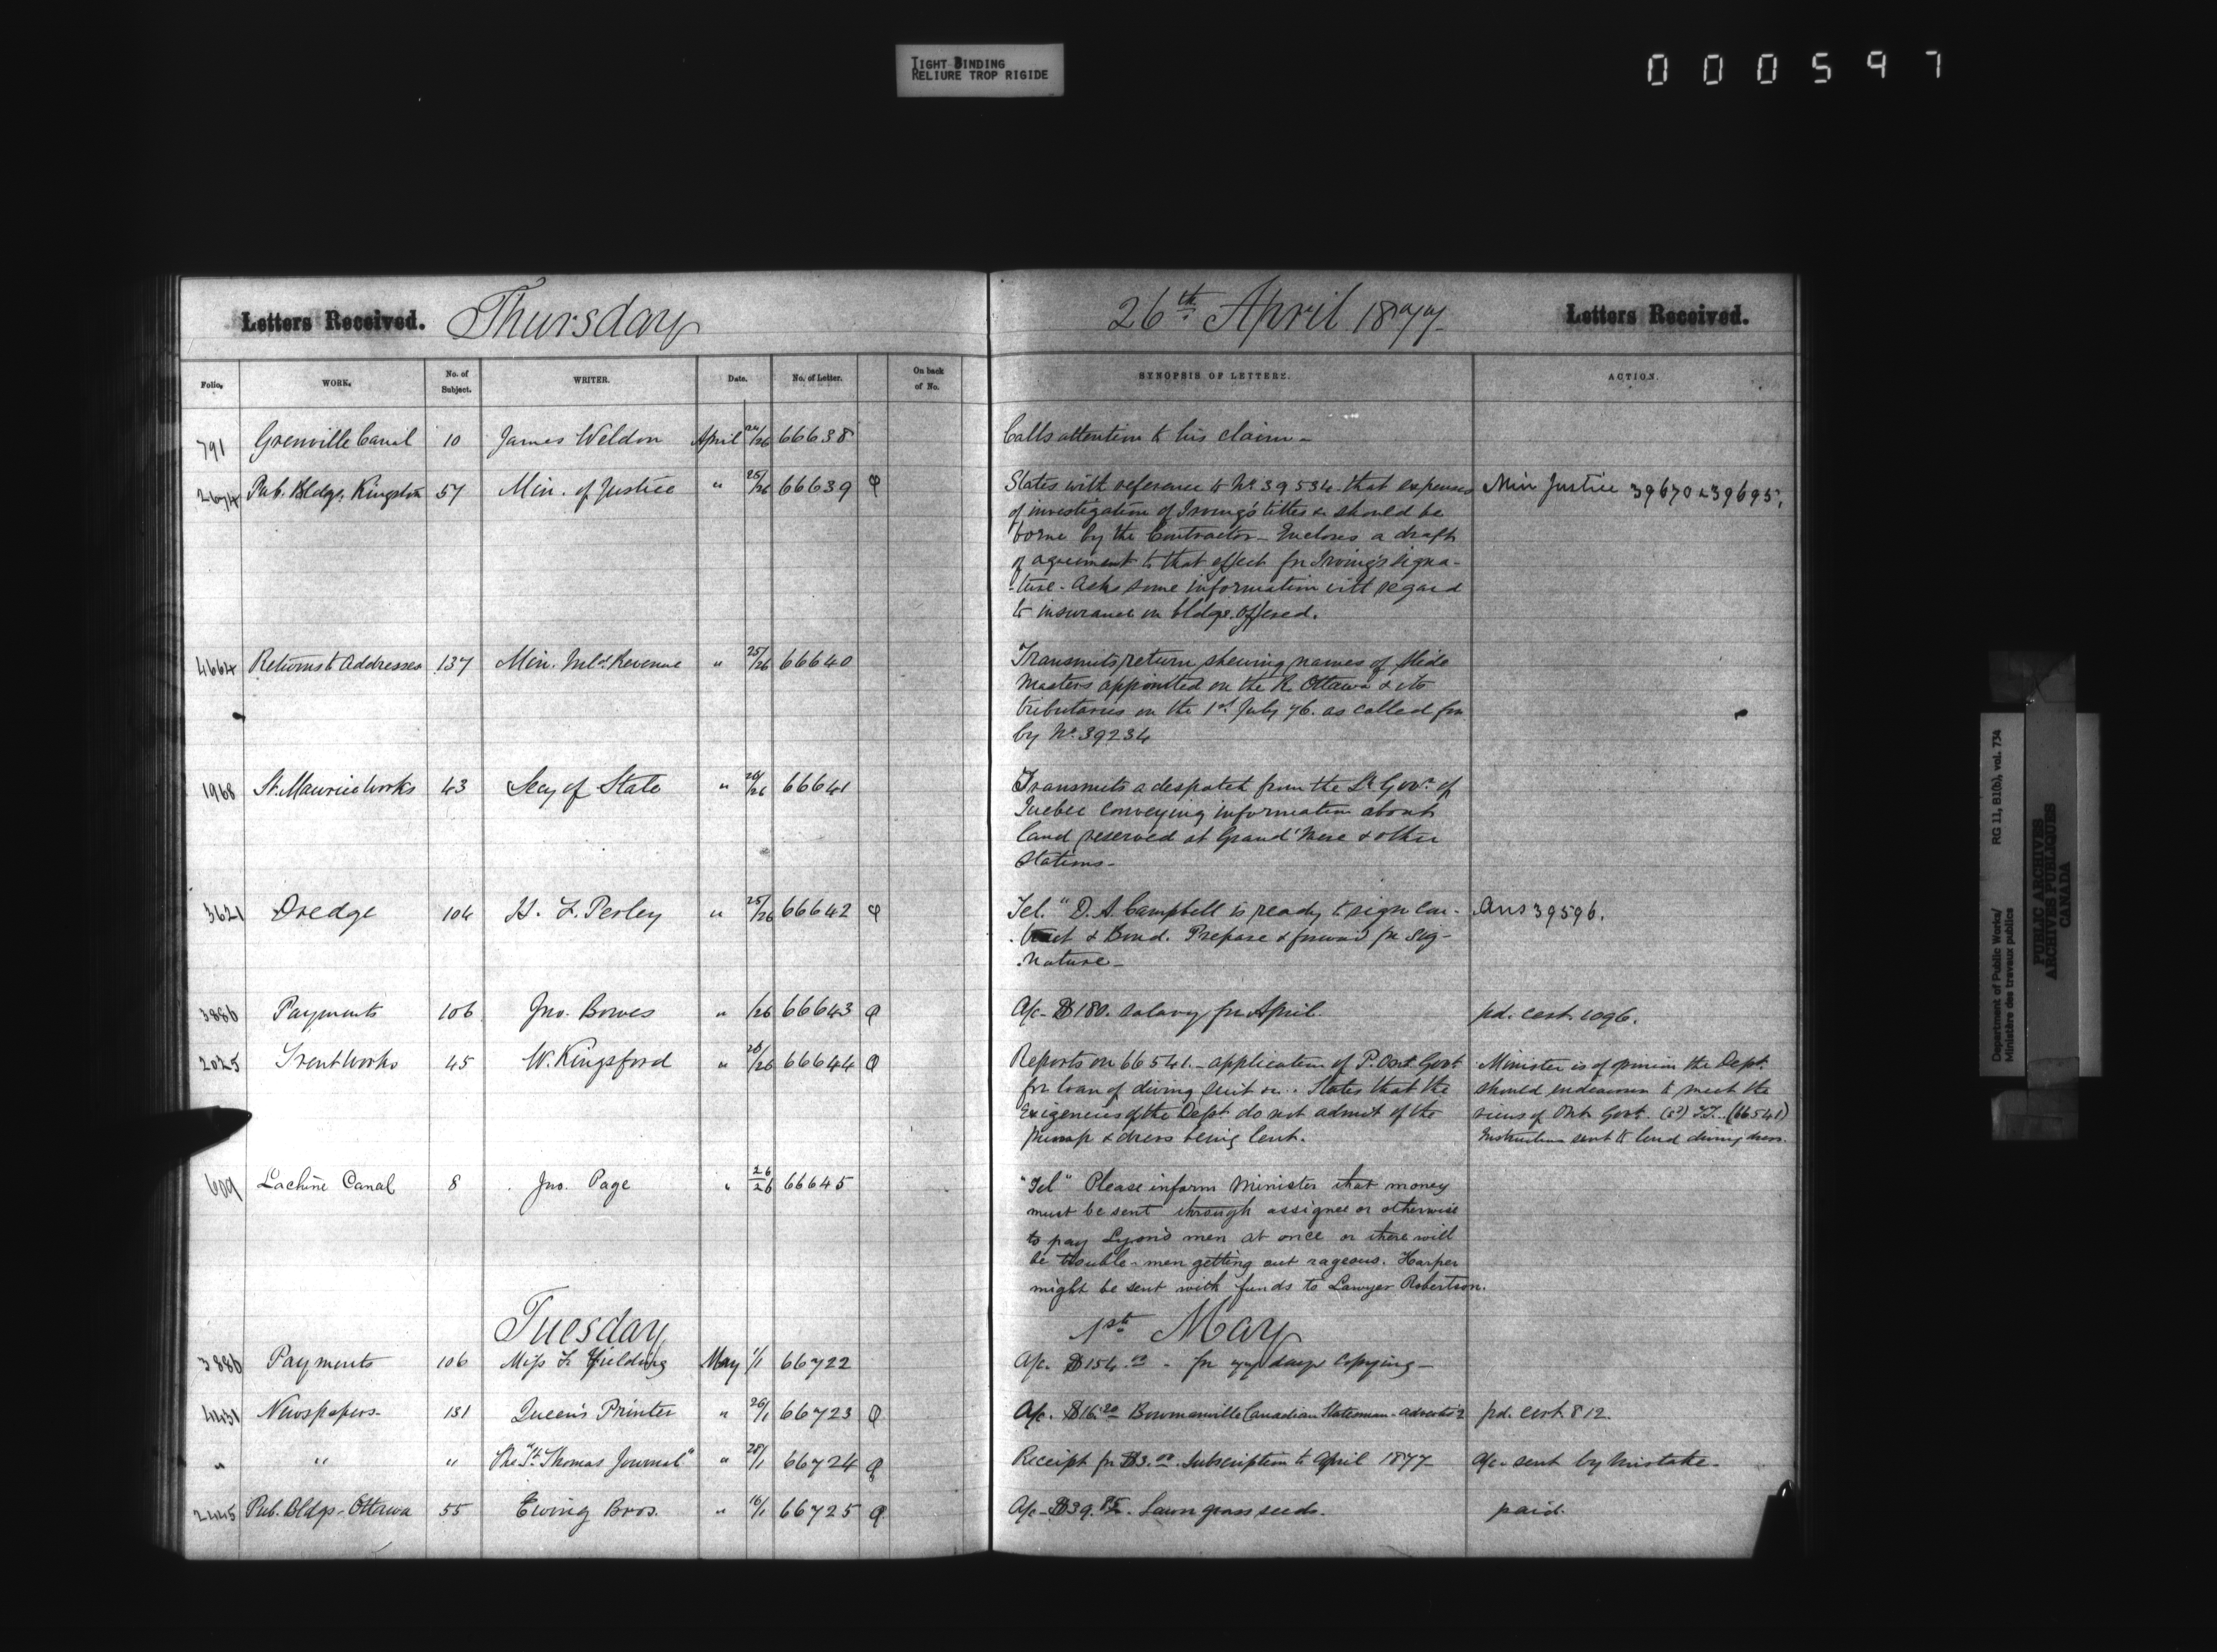 TIGHT BINDING
RELIURE TROP RIGIDE
000597
Letters Received. Thursday 26th April 1877 Letters Received.
Folio. WORK. No. of Subject. WRITER. Date. No. of Letter. On back of No. SYNOPSIS OF LETTERS. ACTION.
791 Grenville Canal 10 James Weldon April /26 66638 Calls attention to his claim -
2674 Pub. Bldgs. Kingston 57 Min. of Justice " 25/26 66639 Q States with reference to No 39534 that expenses Min Justice 39670 & 39695,
of investigation of Irving's titles &c should be
borne by the Contractor - Encloses a draft
of agreement to that effect for Irving's signa-
-ture - Asks some information with regard
to insurance on bldgs. offered.
4664 Returns to Addresses 137 Min. Inld Revenue " 25/26 66640 Transmits return shewing names of Slide
Masters appointed on the R. Ottawa & its
tributaries on the 1st July 76. as called for
by No. 39234
1968 St. Maurice Works 43 Secy of State " 26/26 66641 Transmits a despatch from the Lt Govr. of
Quebec conveying information about
land reserved at Grand' Mere & other
Stations -
3621 Dredge 104 H. F. Perley " 25/26 66642 Q Tel. "D. A. Campbell is ready to sign Con- Ans 39596.
-tract & Bond. Prepare & forward for sig-
-nature -
3886 Payments 106 Jno. Bowes " /26 66643 Q A/c - $180. salary for April. pd. cert. 1096.
2025 Trent Works 45 W. Kingsford " 26/26 66644 Q Reports on 66541. - application of P. Ont. Govt Minister is of opinion the Dept.
for loan of diving suit &c. States that the should endeavour to meet the
Exigencies of the Dept. do not admit of the views of Ont. Govt. (66541)
pump & dress being lent. Instructions sent to lend diving dress.
609 Lachine Canal 8 Jno. Page " 26/26 66645 "Tel" Please inform Minister that money
must be sent through assignee or otherwise
to pay Lyons men at once or there will
be trouble - men getting out rageous. Harper
might be sent with funds to Lawyer Robertson.
Tuesday 1st May
3886 Payments 106 Miss F. Fielding May 1/1 66722 A/c. $154.00 - for 77 days copying -
4431 Newspapers - 131 Queen's Printer " 26/1 66723 Q A/c. $16.20 Bowmanville Canadian Statesman - advertis'g pd. cert. 812.
" " " The "St. Thomas Journal" " 28/1 66724 Q Receipt for $3.00. Subscription to April 1877 - A/c - sent by mistake -
2445 Pub. Bldgs - Ottawa 55 Ewing Bros. " 16/1 66725 Q A/c - $39.85 - Lawn grass seeds. paid.
Department of Public Works/
Ministère des travaux publics
RG 11, B1(b), vol. 734
PUBLIC ARCHIVES
ARCHIVES PUBLIQUES
CANADA